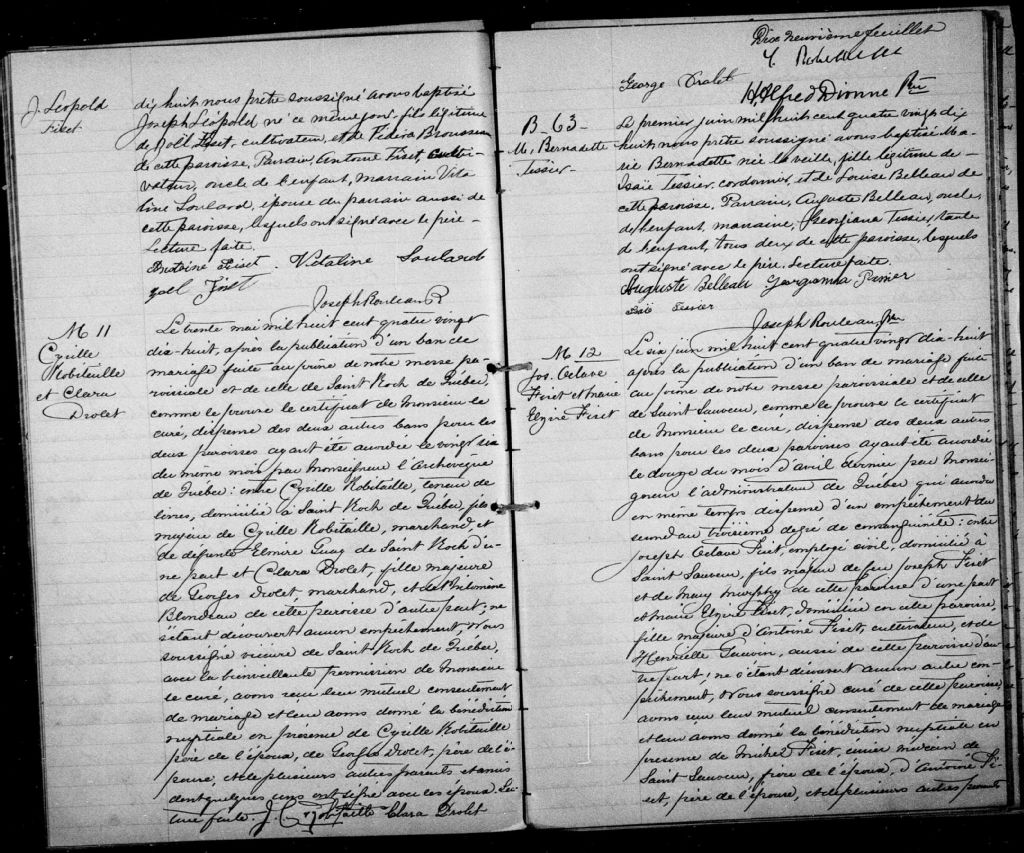 J. Leopold
Fiset
dix huit nous prêtre soussigné avons baptisé
Joseph Léopold né ce même jour, fils légitime
de Joël Fiset, cultivateur, et de Brousseau
de cette paroisse, Parrain Antoine Fiset, culti-
vateur, oncle de l'enfant, marraine Vita
line Soulard, épouse du parrain aussi de
cette paroisse, lesquels ont signé avec le père-
Lecture faite.
Antoine Fiset. Vitaline Soulard
Joël Fiset
Joseph Rouleau
M 11
Cyrille
Robitaille
et Clara
Drolet
Le trente mai mil huit cent quatre vingt
dix-huit, après la publication d'un ban de
mariage faite au prône de notre messe pa-
roissiale et de celle de Saint Roch de Québec,
comme le prouve le certificat de Monsieur le
curé, dispense des deux autres bans pour les
deux paroisses ayant été accordée le vingt six
du même mois par Monseigneur l'Archevêque
de Québec: entre Cyrille Robitaille, teneur de
livres, domicilié à Saint Roch de Québec, fils
majeur de Cyrille Robitaille, marchand, et
de défunte Elmire Guay de Saint Roch d'u-
ne part et Clara Drolet, fille majeure
de Georges Drolet, marchand, et de Philomène
Blondeau de cette paroisse d'autre part; ne
s'étant découvert aucun empêchement, Nous
soussigné vicaire de Saint-Roch de Québec,
avec la bienveillante permission de Monsieur
le curé, avons reçu leur mutuel consentement
de mariage et leur avons donné la bénédiction
nuptiale en présence de Cyrille Robitaille
père de l'époux, de Georges Drolet, père de l'é-
pouse, et de plusieurs autres parents et amis
dont quelques uns ont signé avec les époux. Lec-
ture faite. J. C. Robitaille Clara Drolet
Dix neuvième feuillet
George Drolet
H. Alfred Dionne Ptre
B-63
M. Bernadette
Tessier-
Le premier juin mil huit cent quatre vingt dix
huit, nous prêtre soussigné avons baptisé Ma-
rie Bernadette née la veille, fille légitime de
Isaïe Tessier, cordonnier, et de Louise Belleau de
cette paroisse. Parrain, Auguste Belleau, oncle
de l'enfant, marraine, Georgiana Tessier, tante
de l'enfant, tous deux de cette paroisse, lesquels
ont signé avec le père. Lecture faite.
Auguste Belleau Georgianna
Tessier
Joseph Rouleau Ptre
M 12
Jos. Octave
Fiset et Marie
Elzire Fiset
Le six juin mil huit cent quatre vingt dix-huit
après la publication d'un ban de mariage faite
au prône de notre messe paroissiale et de celle
de Saint Sauveur, comme le prouve le certificat
de Monsieur le curé, dispense des deux autres
bans pour les deux paroisses ayant été accordée
le douze du mois d'avril dernier par Monsei-
gneur l'administrateur de Québec qui accorda
en même temps dispense d'un empêchement du
second au troisième degré de consanguinité: entre
Joseph Octave Fiset, employé civil, domicilié à
Saint Sauveur, fils majeur de feu Joseph Fiset
et de Mary Murphy de cette paroisse d'une part
et Marie Elzire Fiset, domiciliée en cette paroisse,
fille majeure d'Antoine Fiset, cultivateur, et de
Henriette Gauvin, aussi de cette paroisse d'au-
tre part; ne s'étant découvert aucun autre em-
pêchement, Nous soussigné curé de cette paroisse
avons reçu leur mutuel consentement de mariage
et leur avons donné la bénédiction nuptiale en
présence de Michel Fiset, de
Saint Sauveur, frère de l'époux, d'Antoine Fi-
set, père de l'épouse, et de plusieurs autres parents